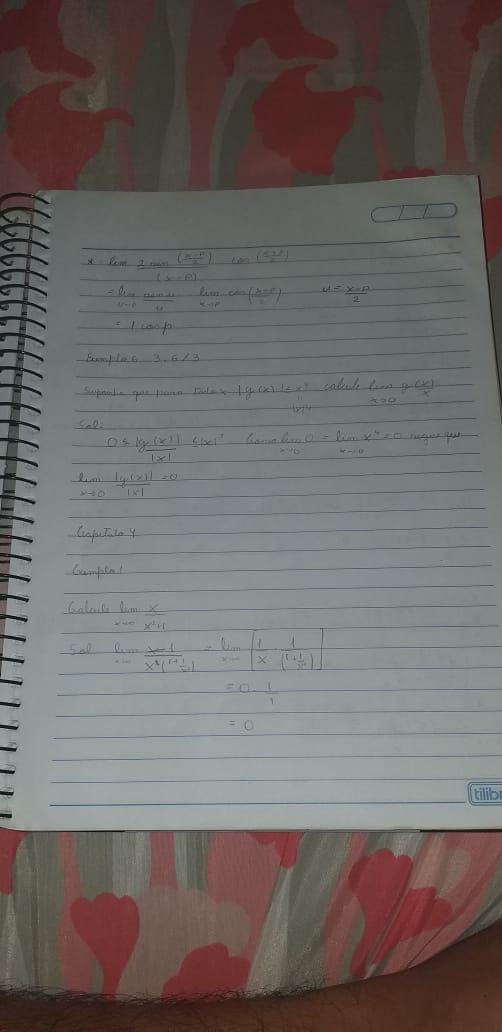 * = lim 2 sen (x-p/2) cos (x+p/2)
(x-p)
= lim sen u / u lim cos (x+p/2) u = x-p/2
u→0 x→p
= 1 cos p
Exemplo 6 3.6/3
Suponha que para todo x |g(x)| ≤ x⁴ calcule lim g(x)/x
|x|⁴ x→0
Sol:
0 ≤ |g(x)|/|x| ≤ |x|³ Como lim 0 = lim x⁴ = 0 segue que
x→0 x→0
lim |g(x)|/|x| = 0
x→0
Capitulo 4
Exemplo 1
Calcule lim x/x²+1
x→∞
Sol lim x·1/x²(1+1/x²) = lim [1/x · 1/(1+1/x²)]
x→∞ x→∞
= 0 · 1/1
= 0
tilibr